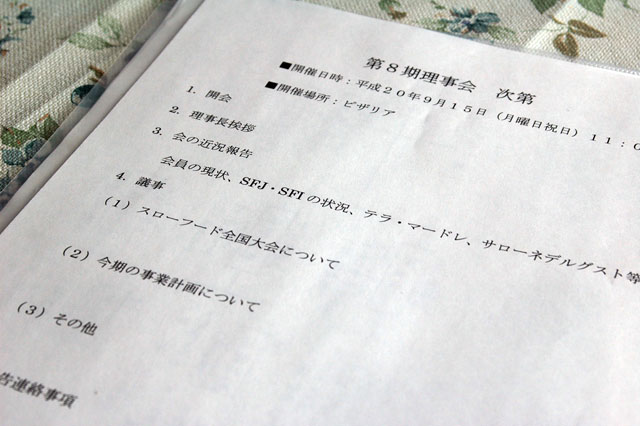 第８期理事会　次第
■開催日時：平成２０年９月１５日（月曜日祝日）１１：０
■開催場所：ピザリア
1. 開会
2. 理事長挨拶
3. 会の近況報告
会員の現状、SFJ・SFIの状況、テラ・マードレ、サローネデルグスト等
4. 議事
（１）スローフード全国大会について
（２）今期の事業計画について
（３）その他
告連絡事項